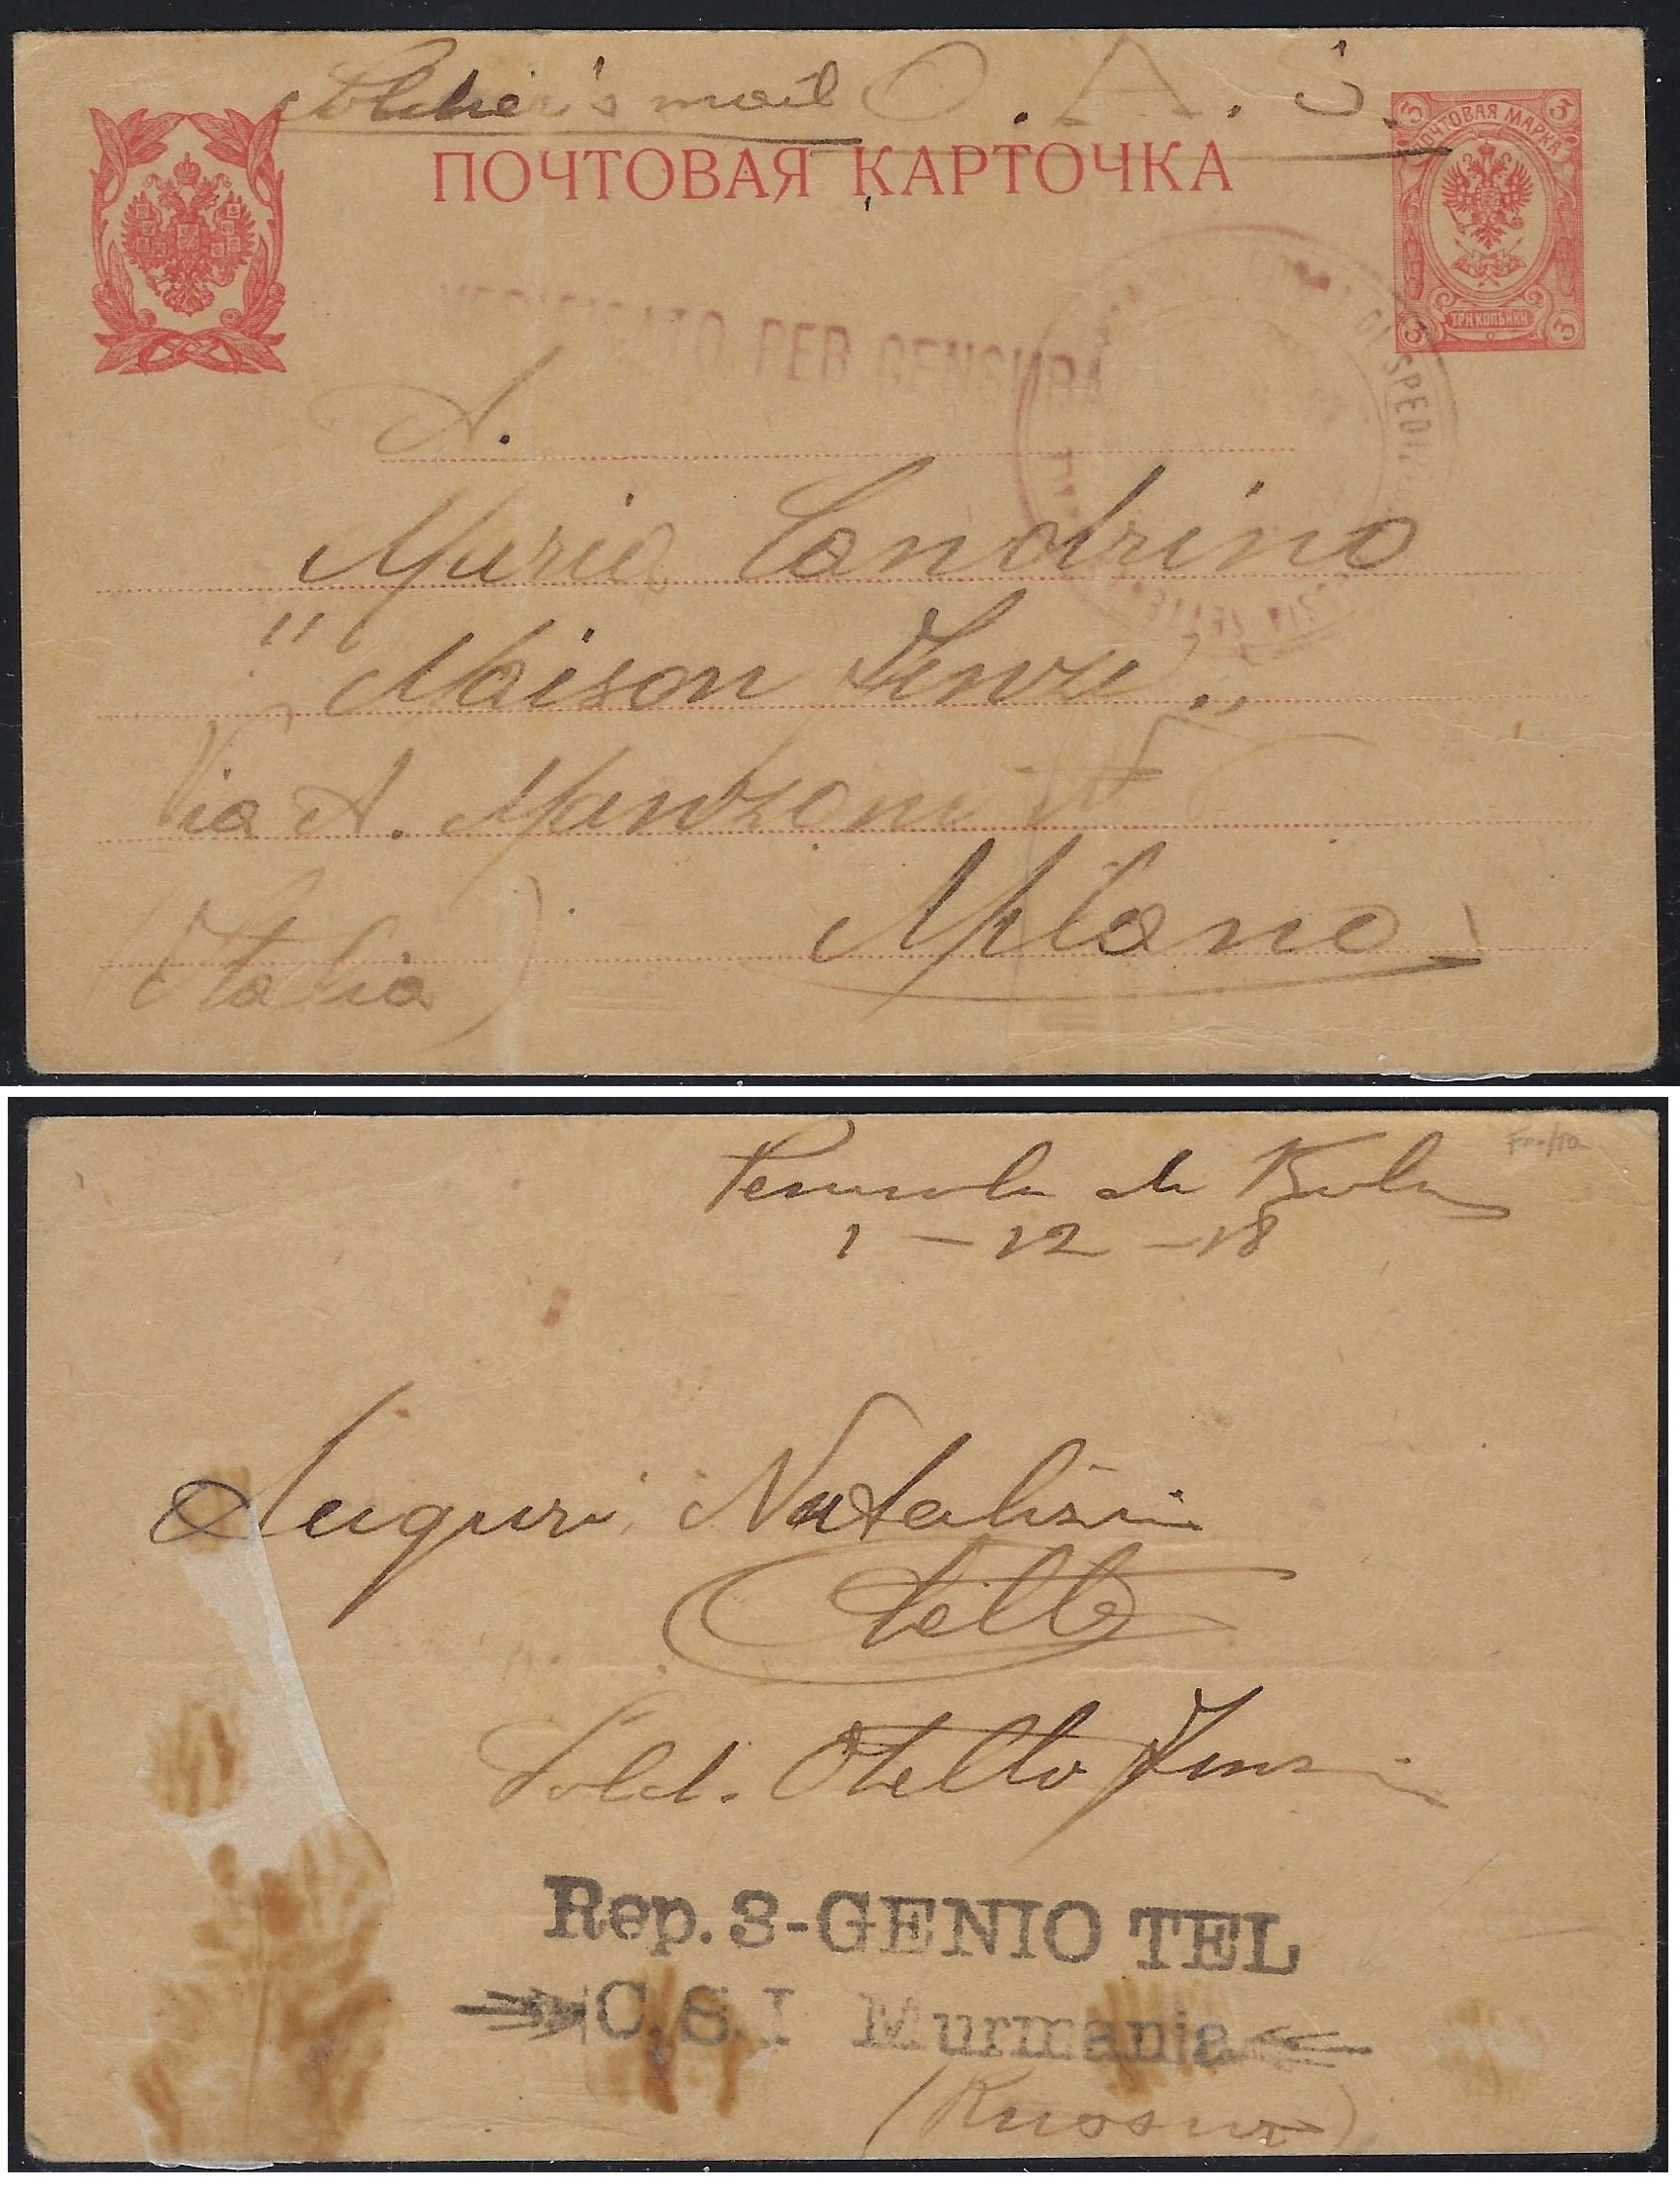 Soldier's mail O. A. S.
ПОЧТОВАЯ КАРТОЧКА
3 ПОЧТОВАЯ МАРКА 3
3 ТРИ КОПѢЙКИ 3
VERIFICATO PER CENSURA
DI SPEDIZ
A.
Maria Candrino
"Maison
Via A. Manzoni
Milano
(Italia)
Penisola di Kola
1-12-18
Auguri Natalizii
Otello
Sold. Otello
Rep. 3-GENIO TEL
C.S.I Murmania
(Russia)